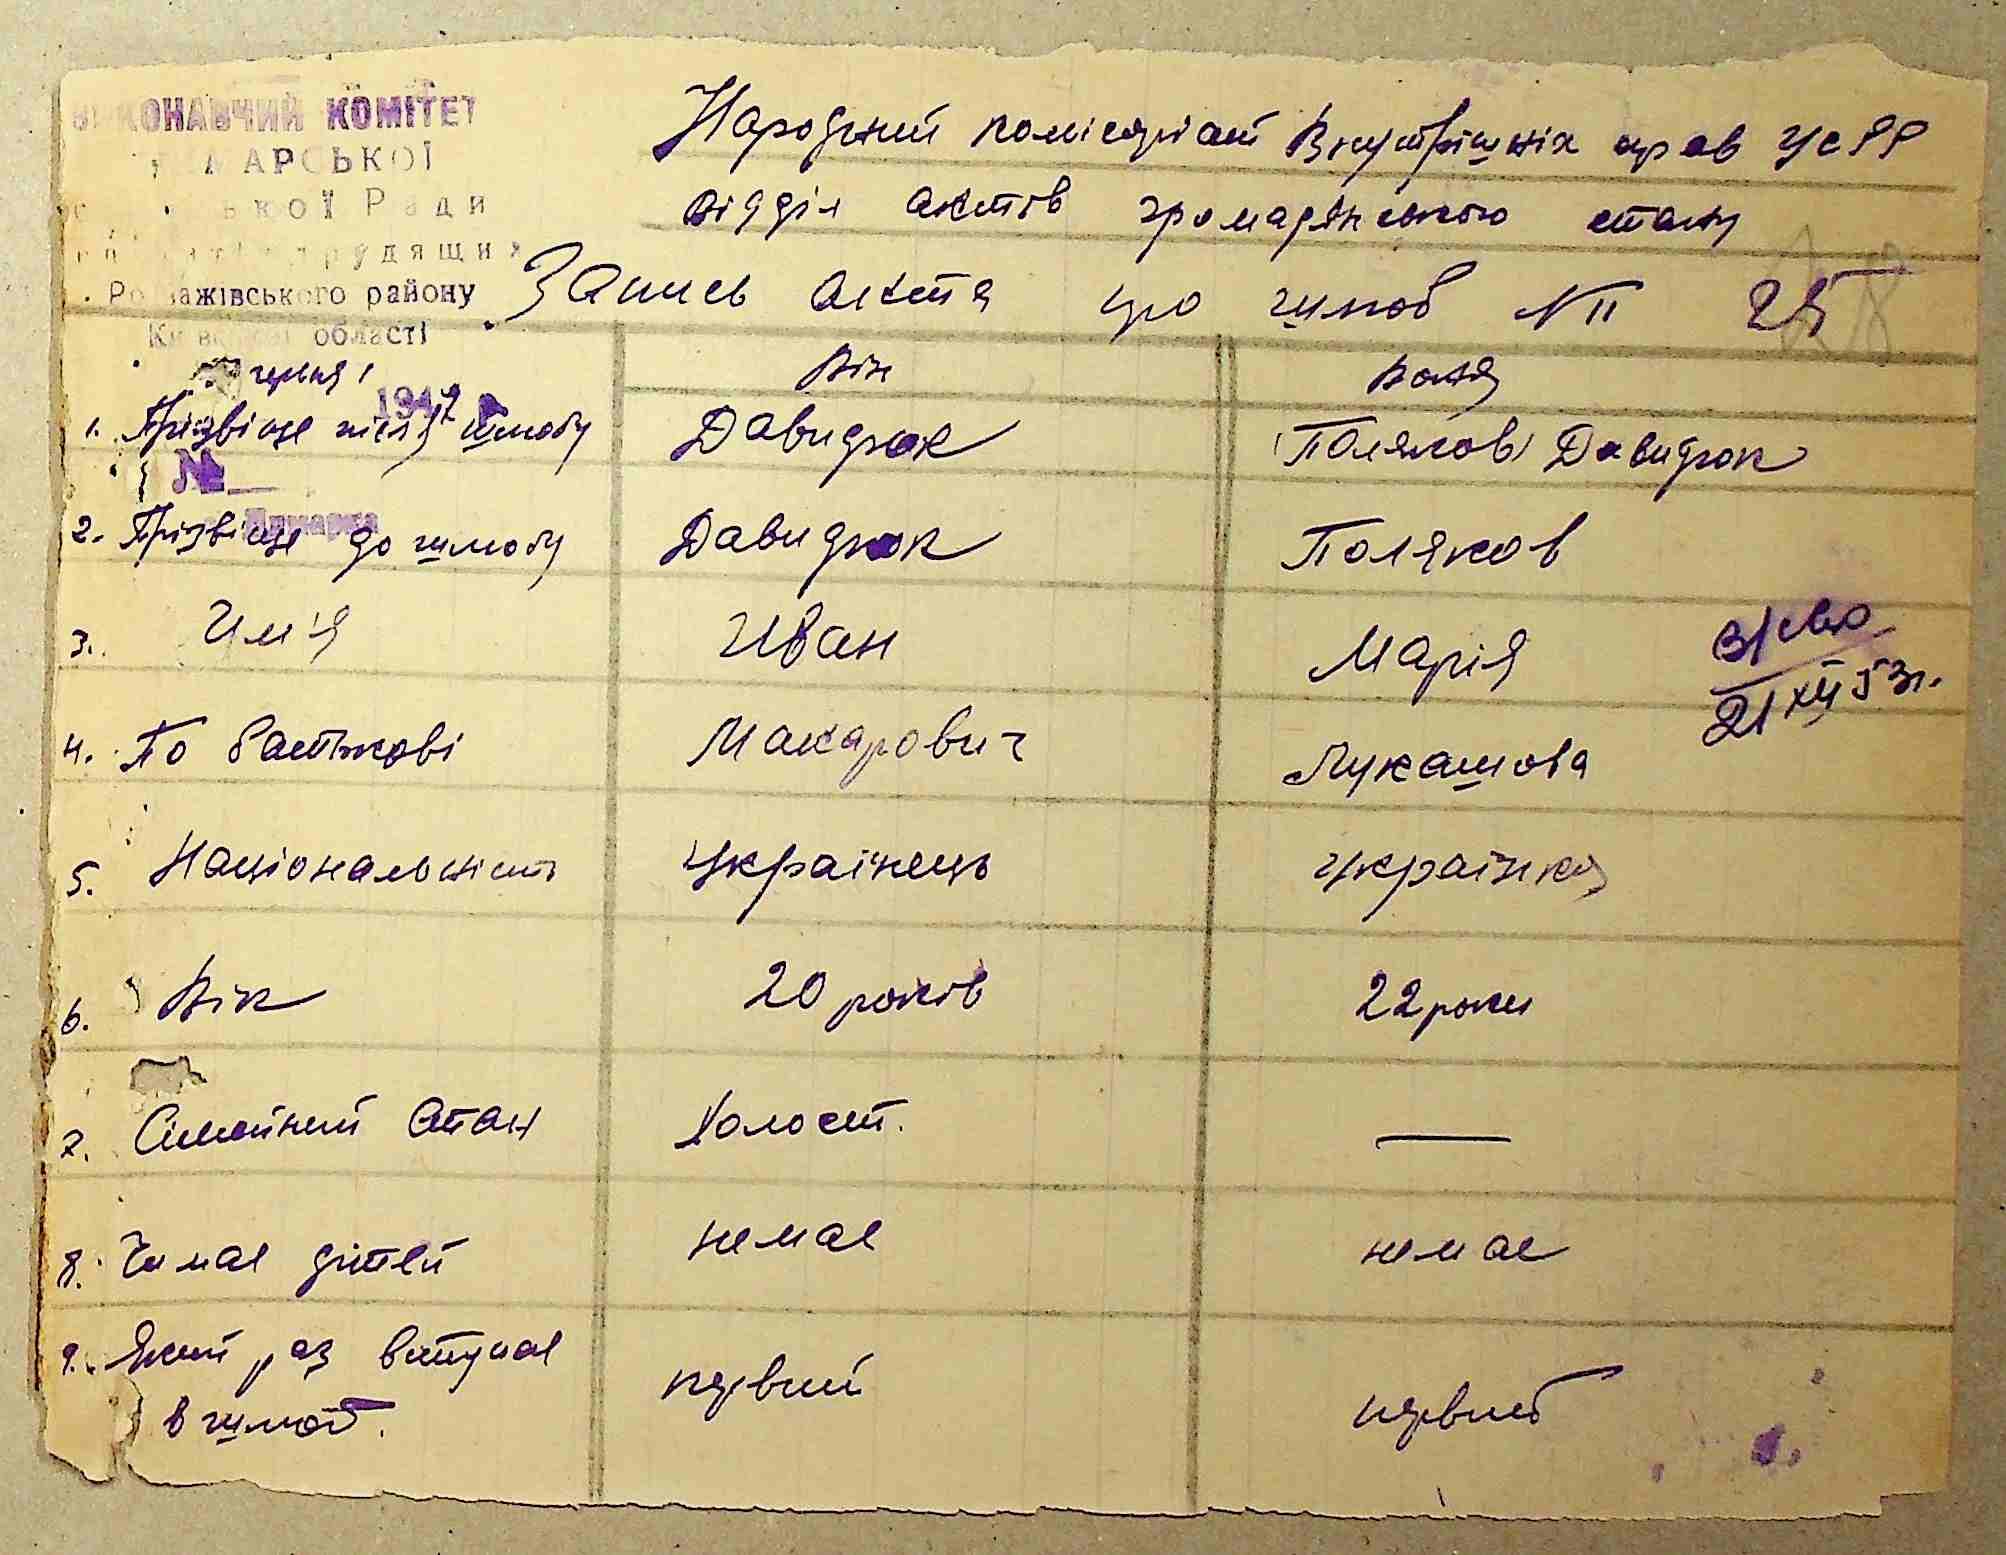 ВИКОНАВЧИЙ КОМІТЕТ
МАРСЬКОЇ
ької Ради
трудящих
Розважівського району
Київської області
червня 1947
№
Народний комісаріат Внутрішніх справ УСРР
відділ актів громадянського стану
Запись акта про шлюб № 25
Він Вона
1. Прізвіще після шлюбу Давидюк (Поляков) Давидюк
2. Прізвіще до шлюбу Давидюк Поляков
3. Им'я Иван Марія
21 XII 53 г.
4. По батькові Макарович Лукашова
5. Національність Українець українка
6. Вік 20 років 22 роки
7. Сімейний стан Холост. —
8. Чи має дітей немає немає
9. Який раз вступає первий первий
в шлюб.